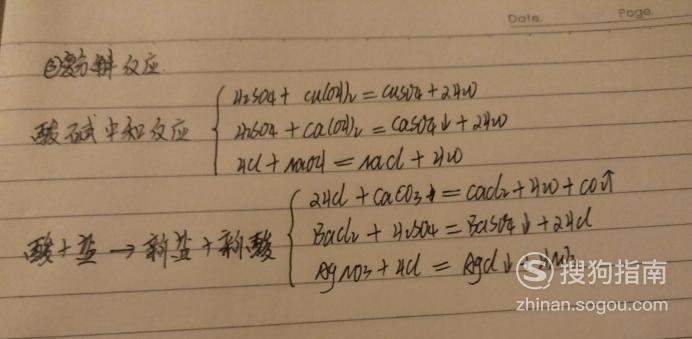 Date.
Page.
③复分解反应.
酸碱中和反应
H₂SO₄ + Cu(OH)₂ = CuSO₄ + 2H₂O
H₂SO₄ + Ca(OH)₂ = CaSO₄↓ + 2H₂O
HCl + NaOH = NaCl + H₂O
酸 + 盐 → 新盐 + 新酸
2HCl + CaCO₃ = CaCl₂ + H₂O + CO₂↑
BaCl₂ + H₂SO₄ = BaSO₄↓ + 2HCl
AgNO₃ + HCl = AgCl↓ +
搜狗指南
zhinan.sogou.com